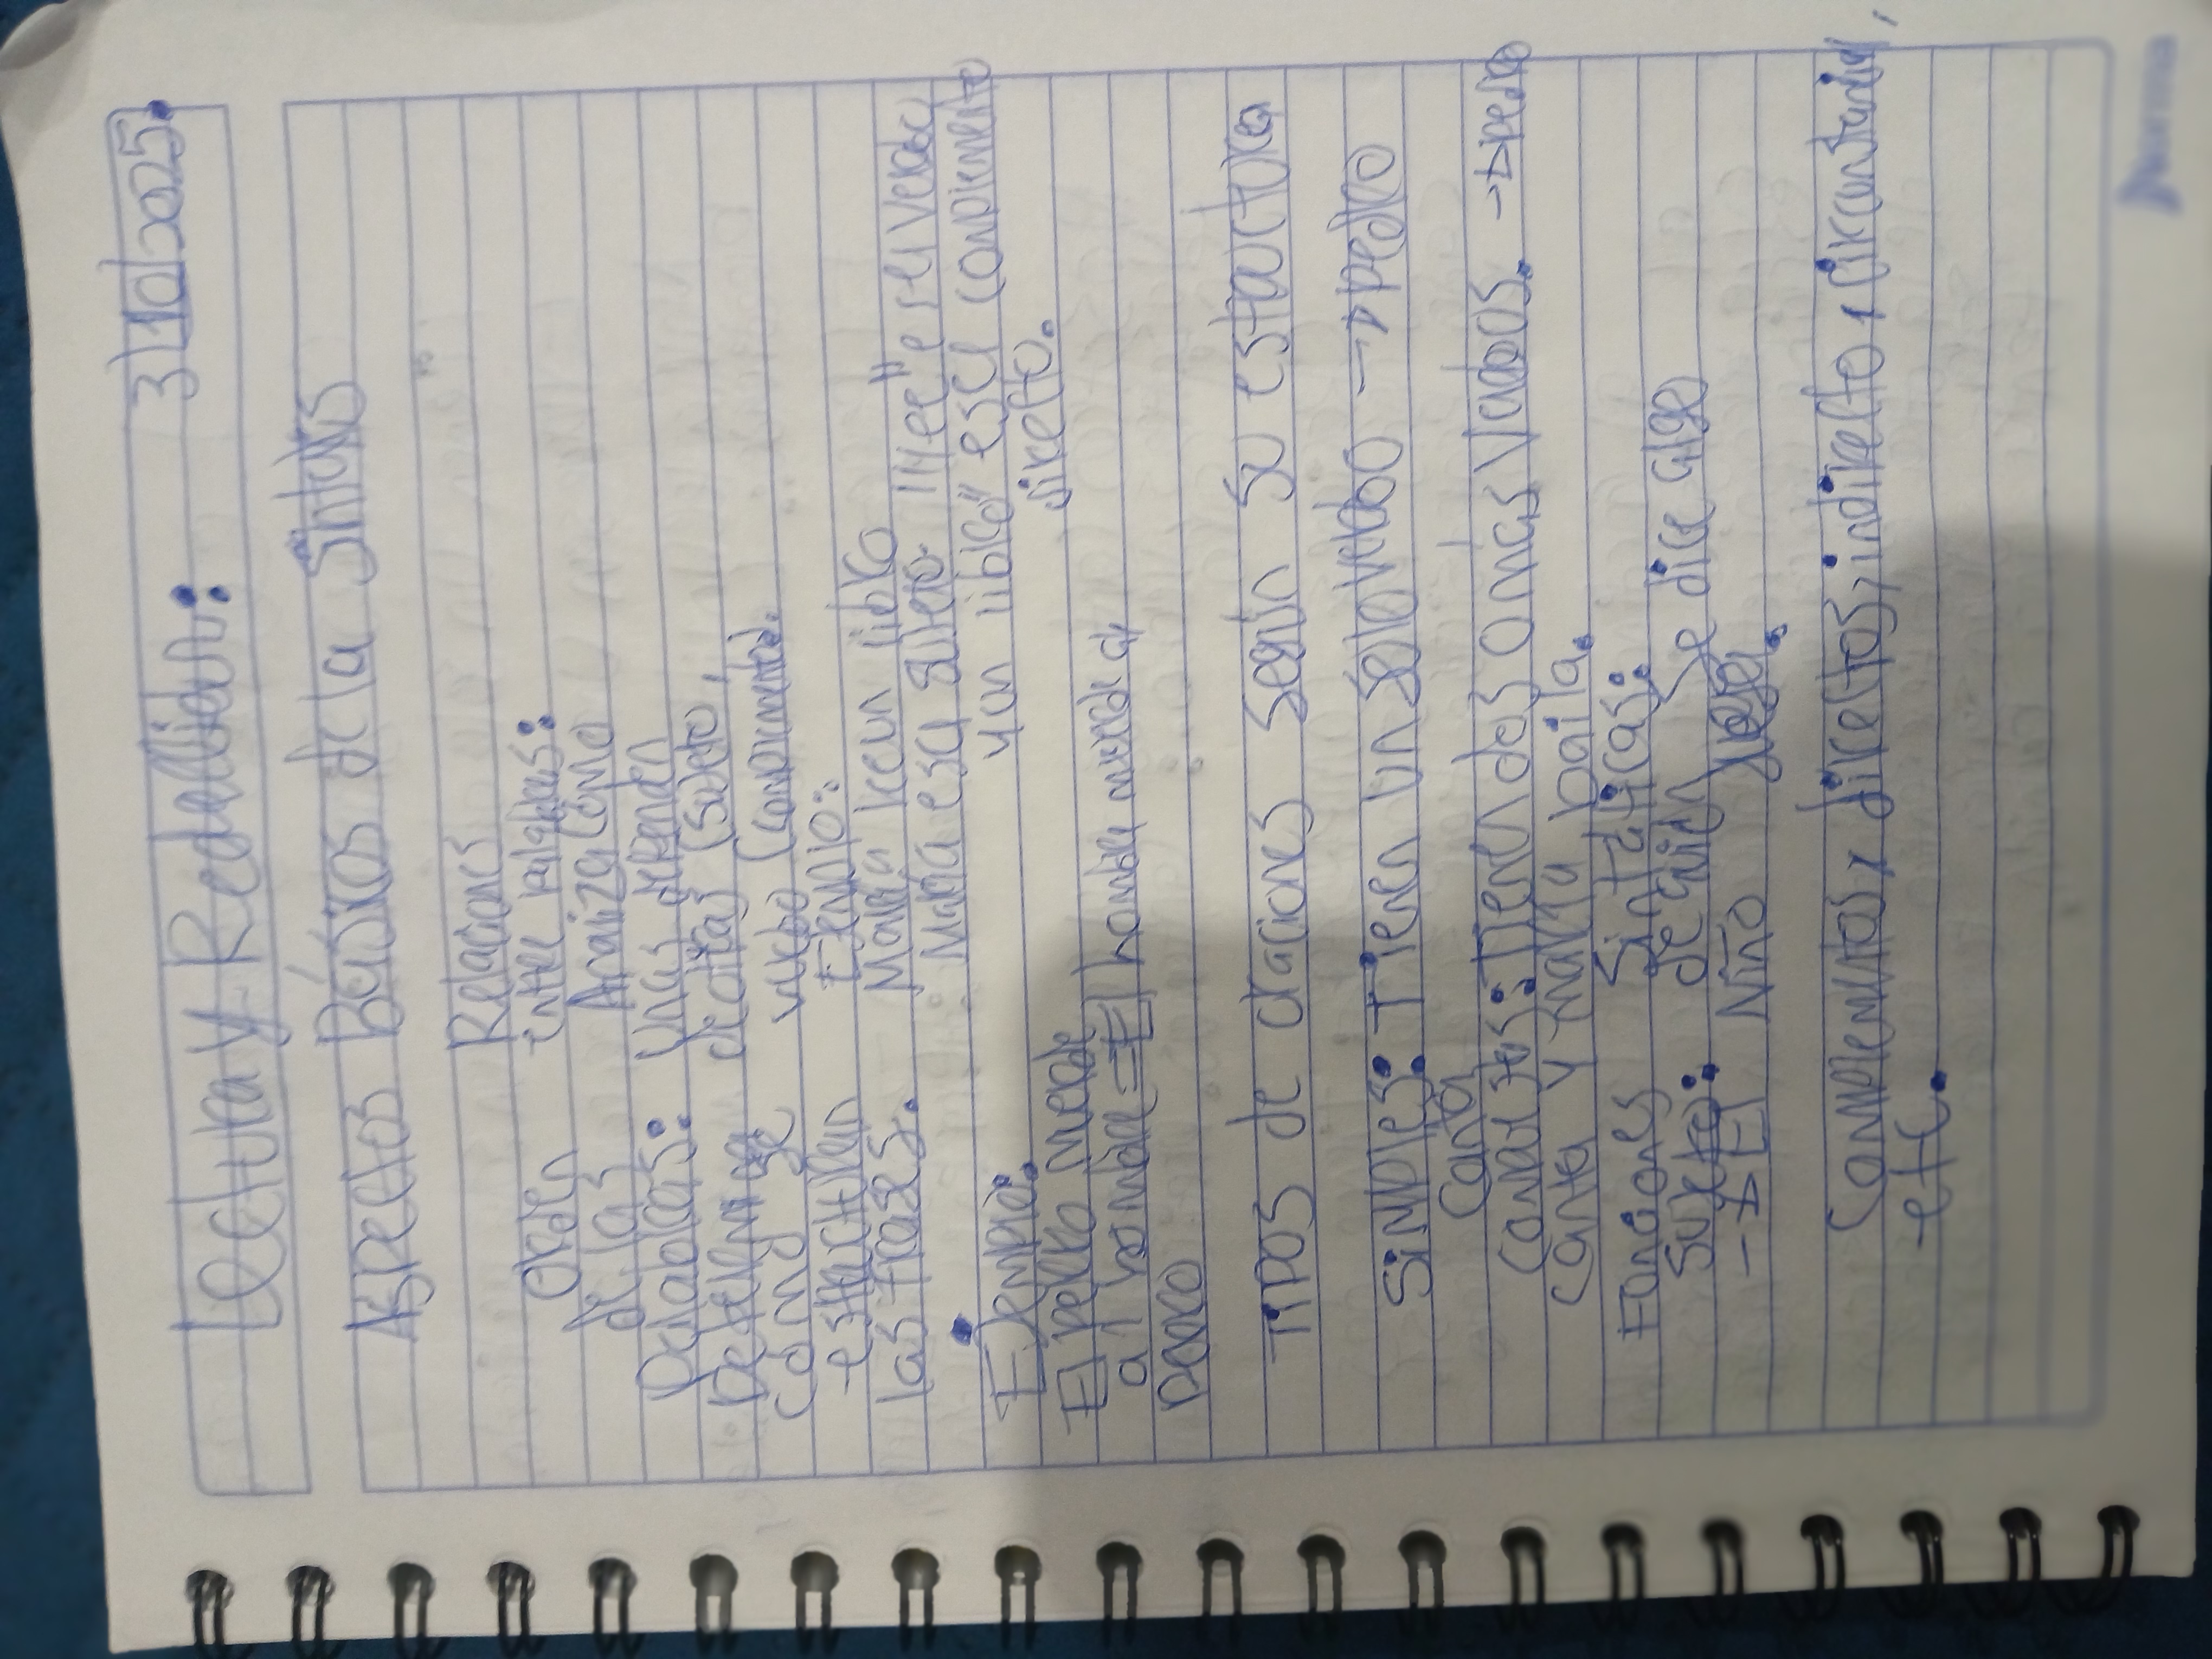 Lectura y Redacción: 3/10/2025.
Aspectos Básicos de la Sintaxis
Orden
de las
Palabras:
Determina
como se
estructuran
las frases.
Ejemplo:
El perro muerde
al hombre = El hombre muerde al
perro
Relaciones
entre palabras:
Analiza como
unas dependen
de otras (sujeto,
verbo (complementos).
Ejemplo:
María lee un libro
María es el sujeto. "lee" es el verbo
y un libro" es el complemento
directo.
Tipos de oraciones según su estructura
Simples: Tienen un solo verbo → Pedro
canta
: Tienen dos o más verbos. → Pedro
canta y María baila.
Funciones Sintácticas:
Sujeto: de quien se dice algo
→ El Niño juega.
Complementos, directos, indirecto, circunstancial,
etc.